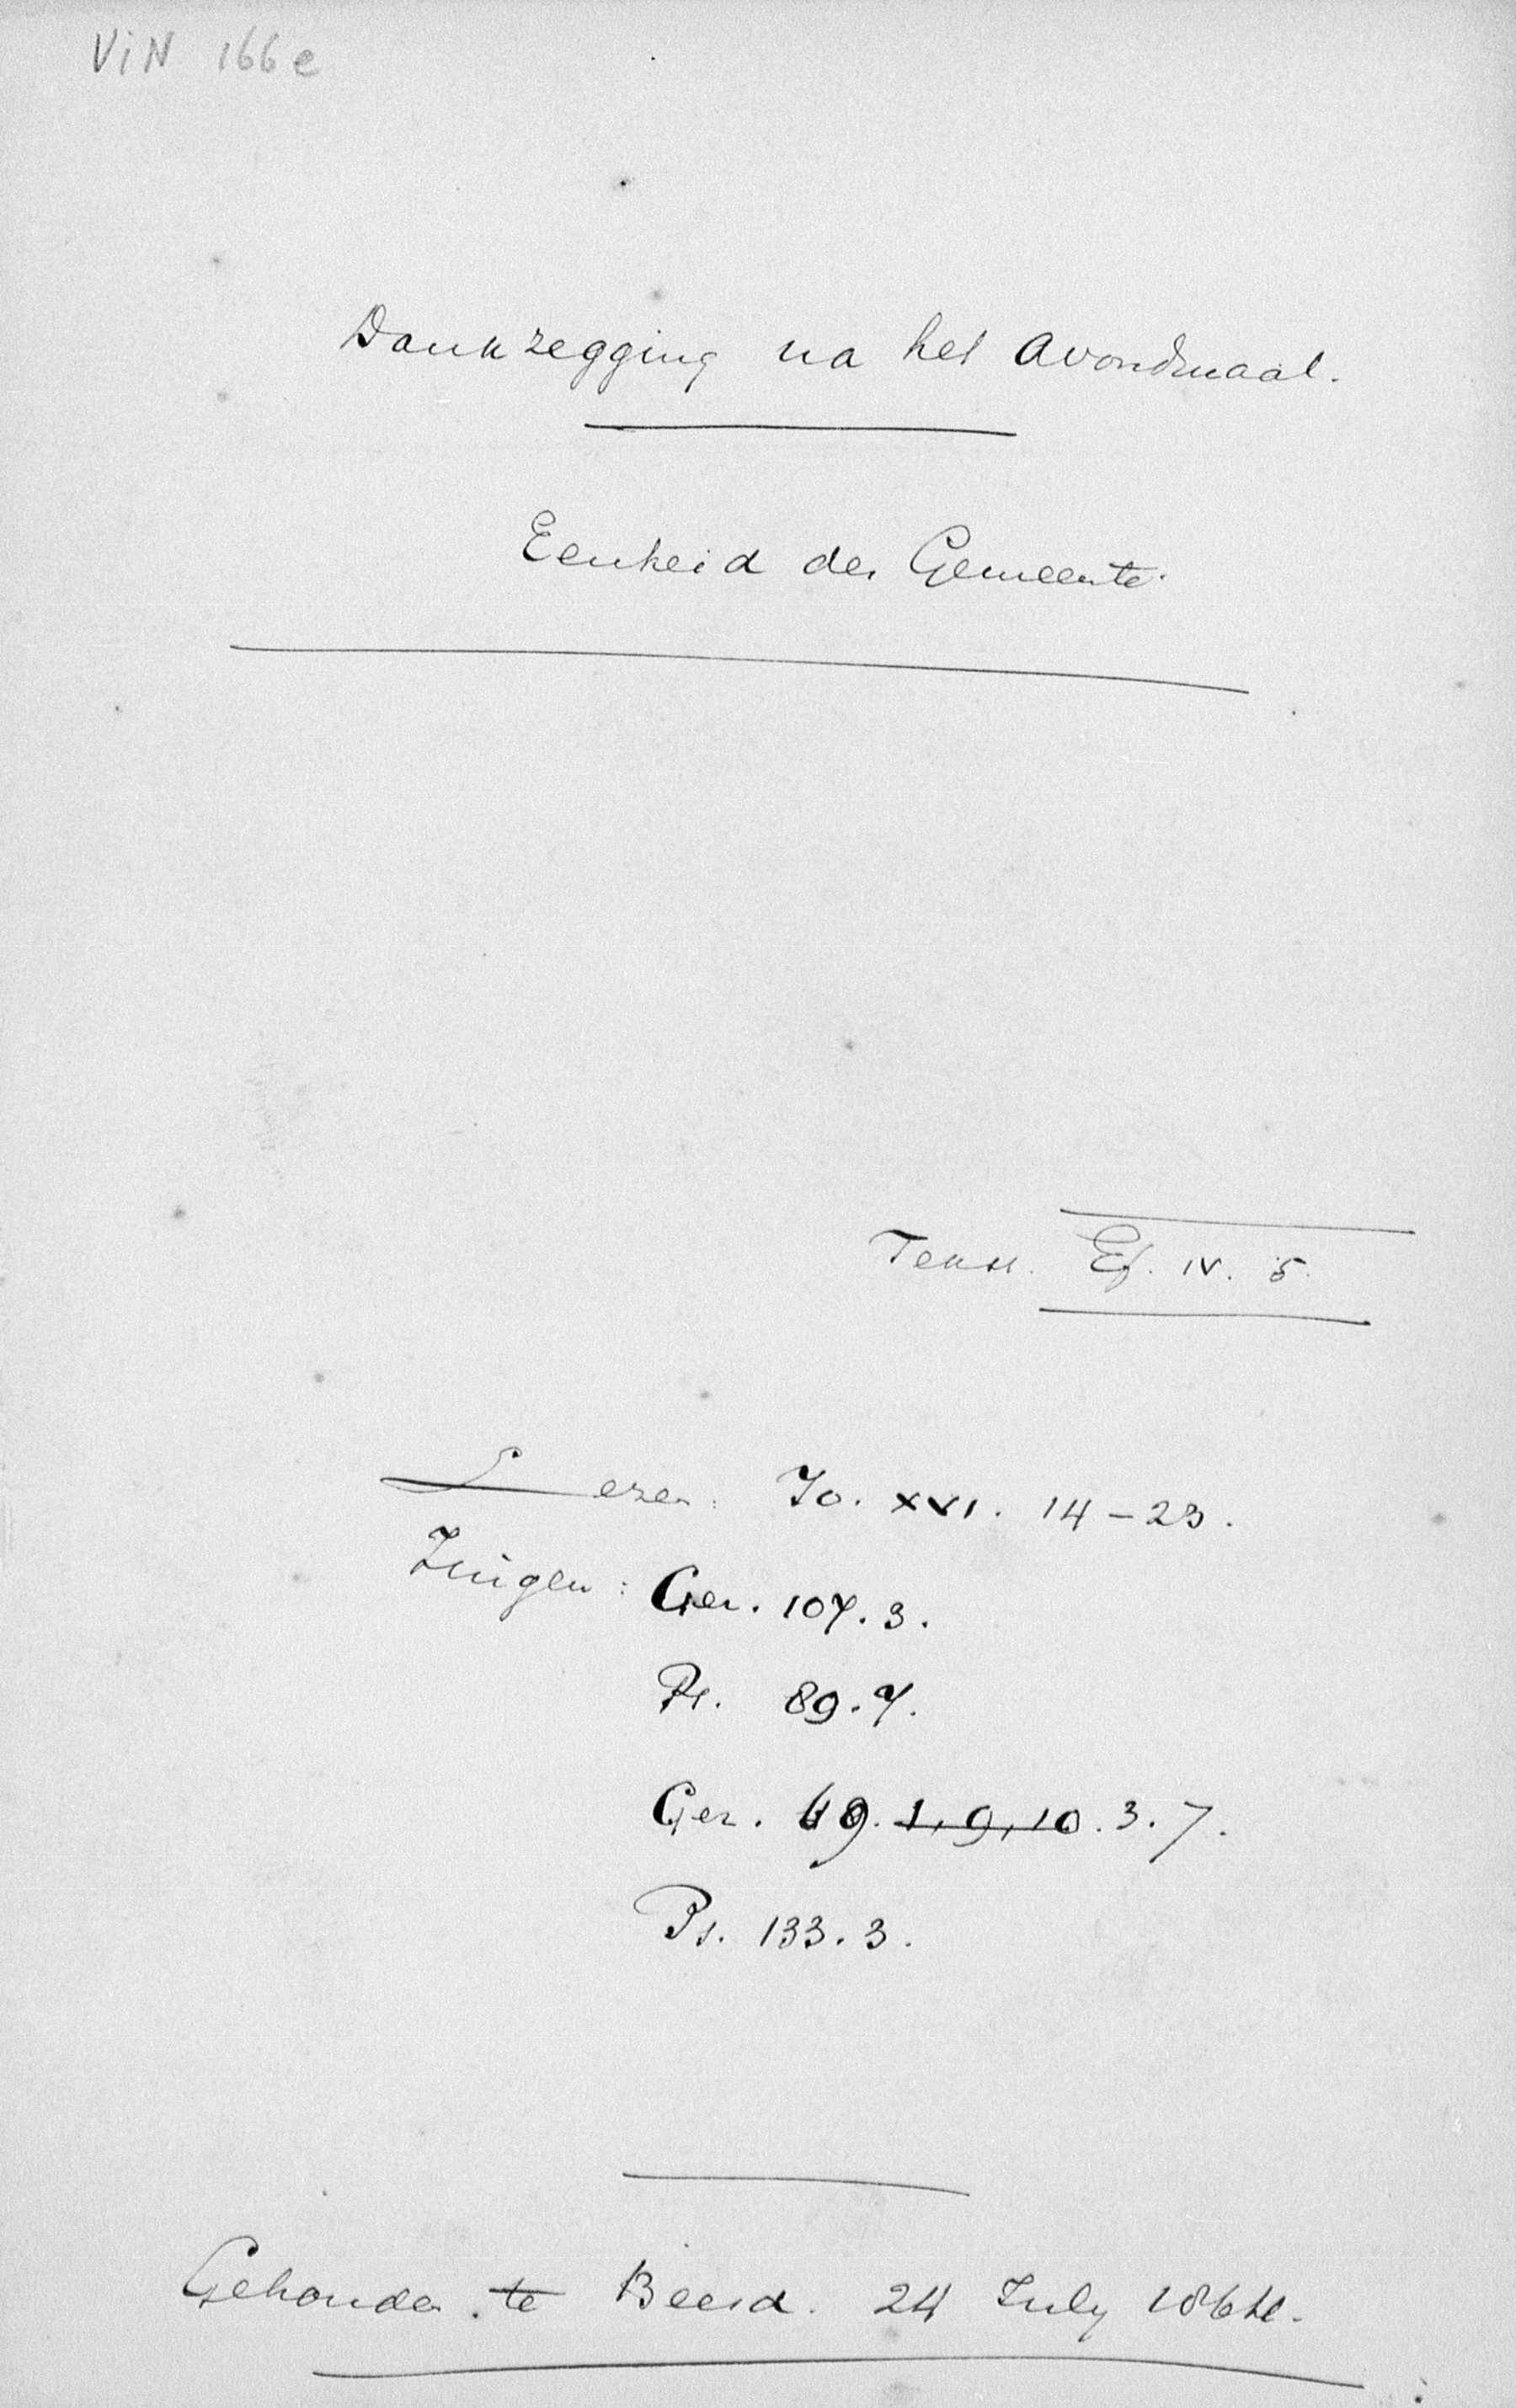 ViN 166e
Dankzegging na het Avondmaal.
Eenheid der Gemeente.
Tekst. Ef. IV. 5.
Lezen: Jo. XVI. 14-23.
Zingen: Gez. 107. 3.
Ps. 89. 7.
Gez. 69. 1, 9, 10. 3. 7.
Ps. 133. 3.
Gehouden te Beesd. 24 July 1864.